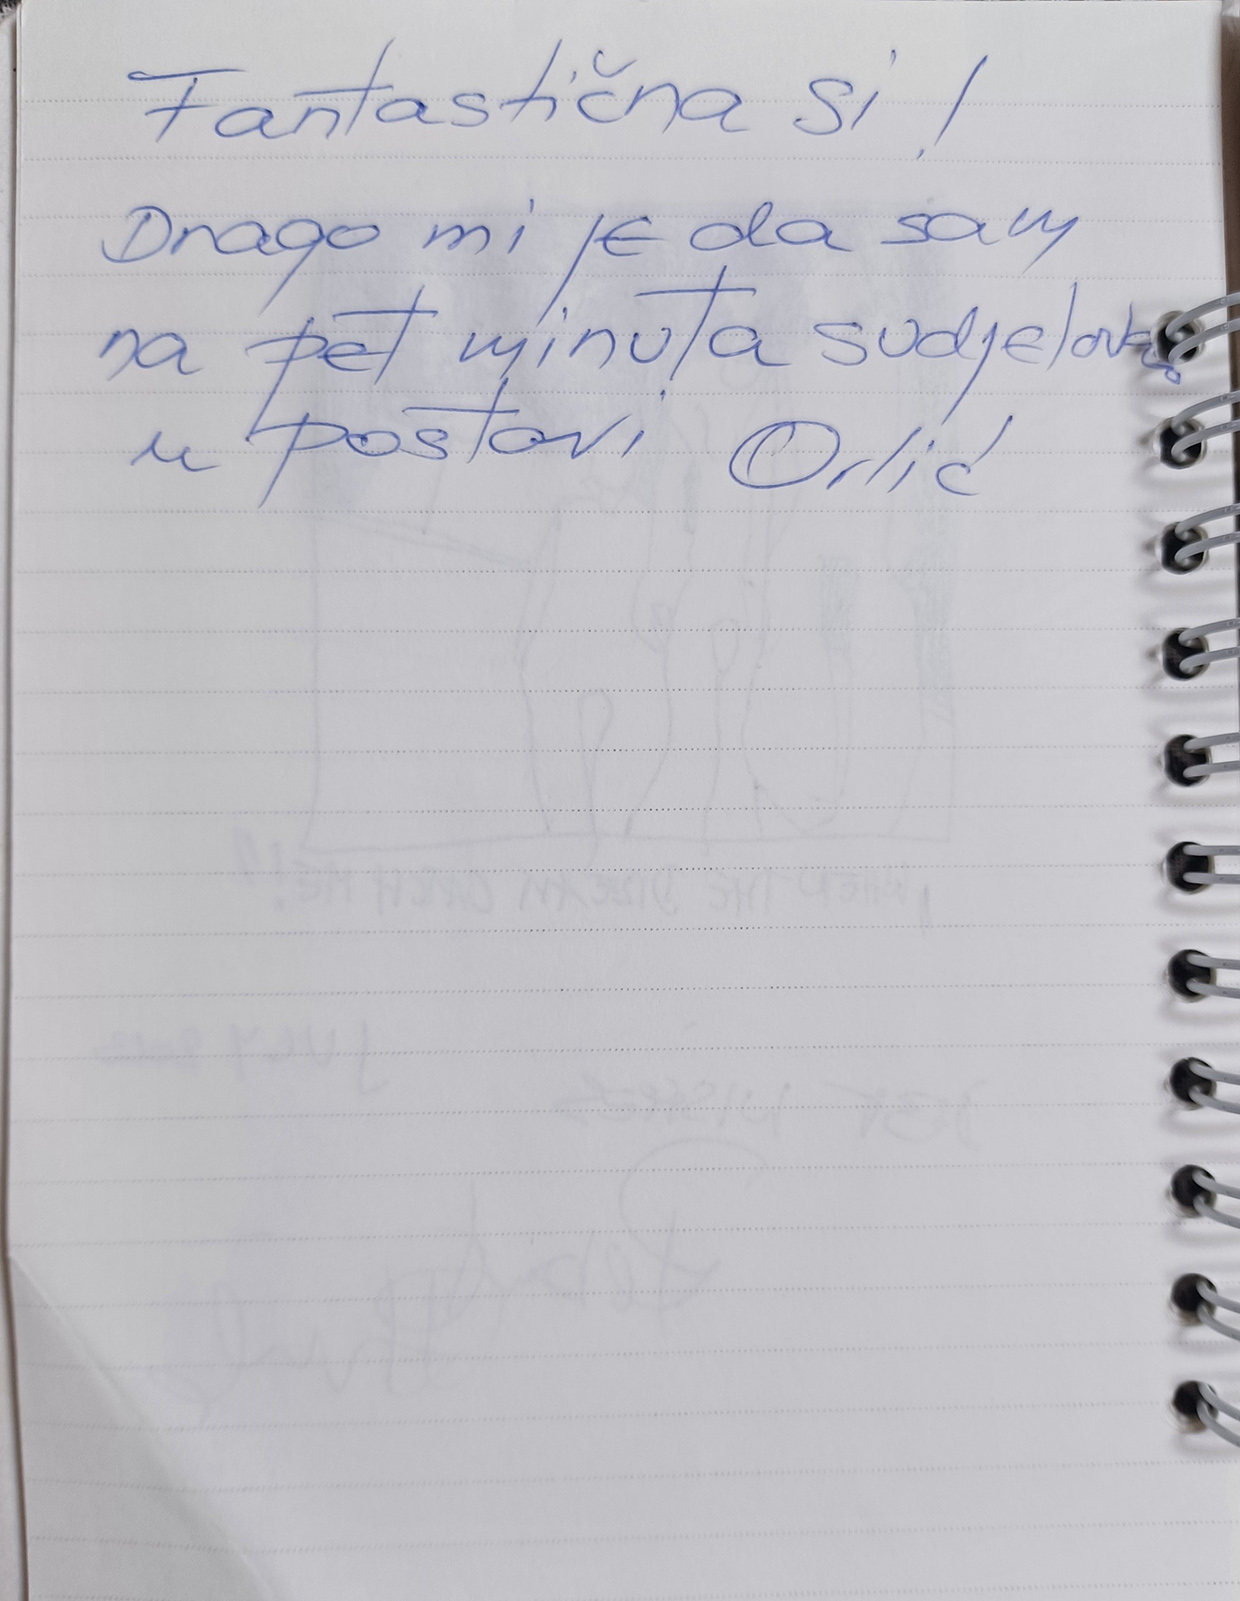 Fantastična si!
Drago mi je da sam
na pet minuta sudjelovao
u postavi Orlić